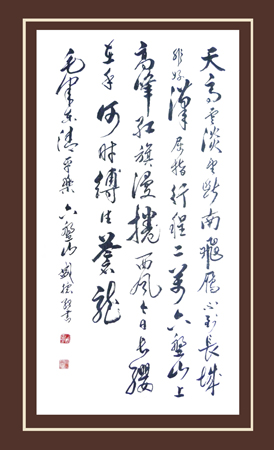 天高雲淡望斷南飛雁不到長城
非好漢屈指行程二萬六盤山上
高峰紅旗漫捲西風今日長纓
在手何時縛住蒼龍
毛澤東清平樂六盤山